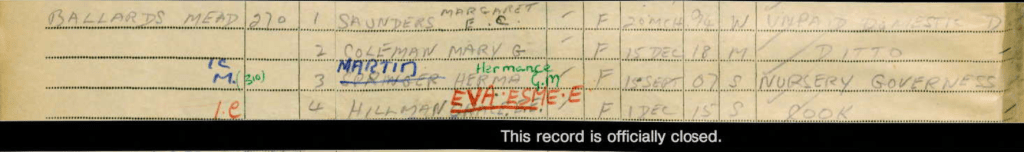 BALLARDS MEAD 270 1 SAUNDERS MARGARET E. C. F 20 MCH 94 W UNPAID DOMESTIC D
2 COLEMAN MARY G F 15 DEC 18 M DITTO
M. (310) 3 MARTIN HERMA Hermance G.M F 1 SEPT 07 S NURSERY GOVERNESS
4 HILLMAN EVA·ESME·E F 1 DEC 15 S COOK
This record is officially closed.